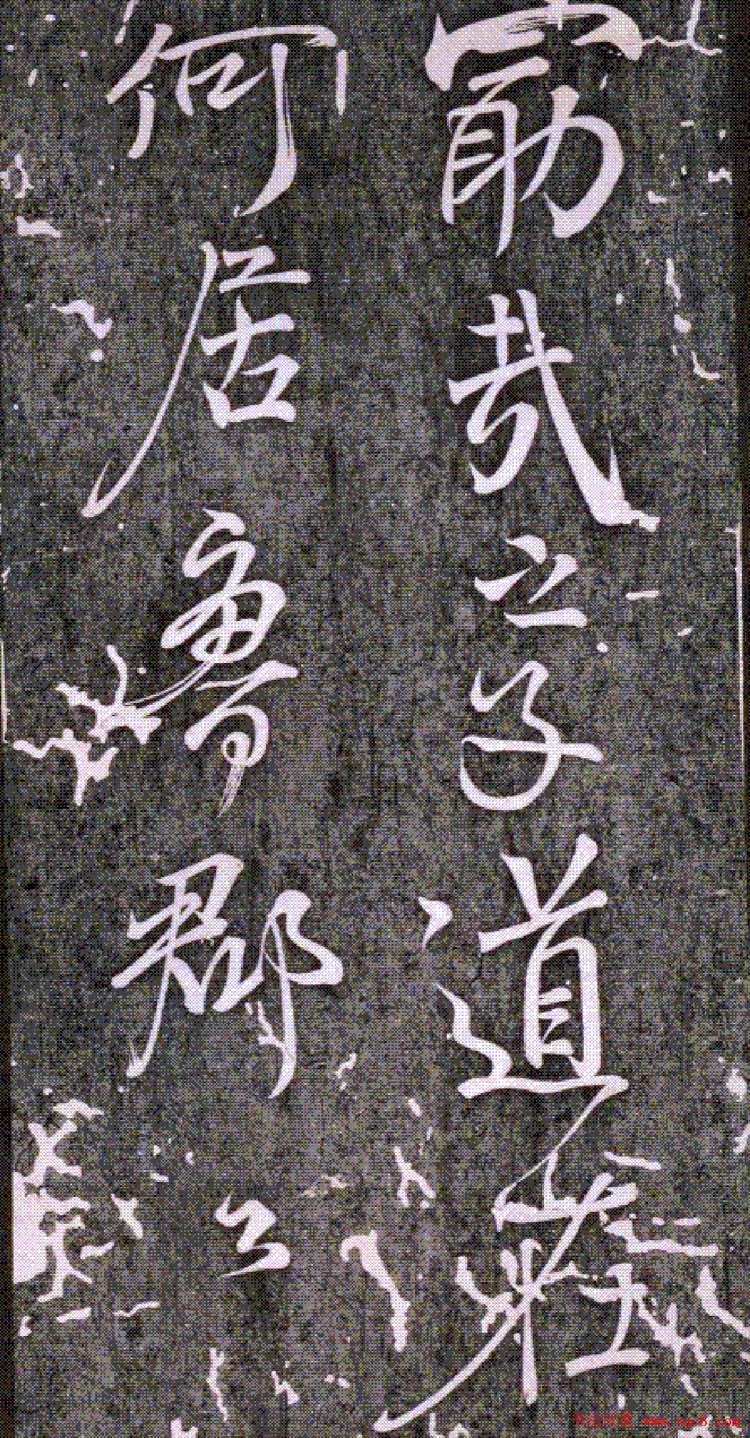 勖哉之子道莊
何居魯郡